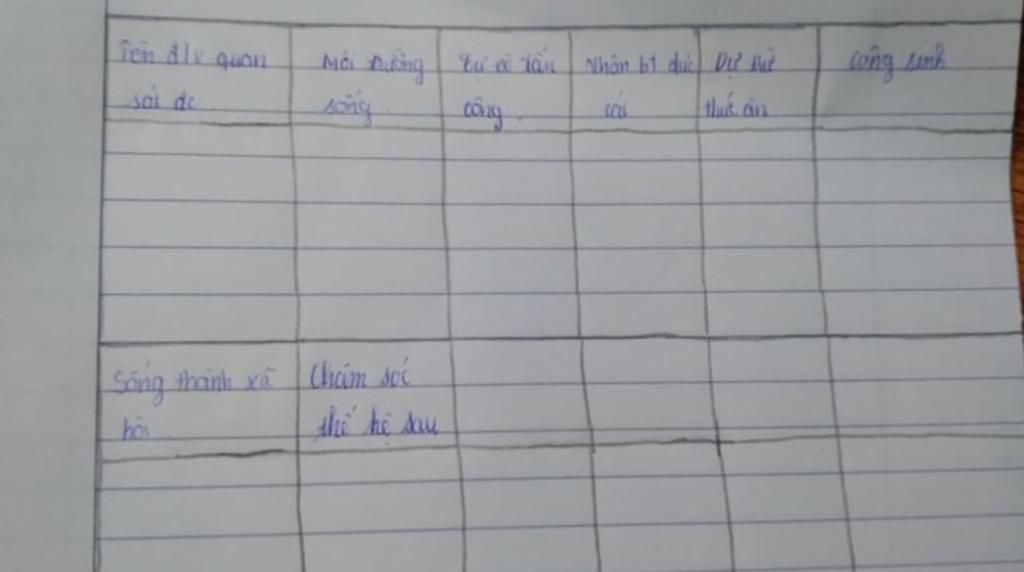 Tên đ/v quan sát đc
Môi trường sống
tự vệ tấn công
Nhận bt đực cái
Dự trữ thức ăn
Cộng sinh
Sống thành xã hội
Chăm sóc thế hệ sau